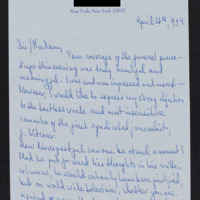 New York, New York 10021
April 28th, 1994
Sir/Madam,
Your coverage of the funeral proce-
dings this evening was truly beautiful and
meaningful. I was and am impressed and moved.
However, I would like to express my strong objection
to the tactless words and most insensitive
remarks of the first syndicated journalist,
How disrespectful can one be at such a moment,
that he put forward his thoughts in his written
columns, he would certainly have been justified,
but on world wide television, whether you are